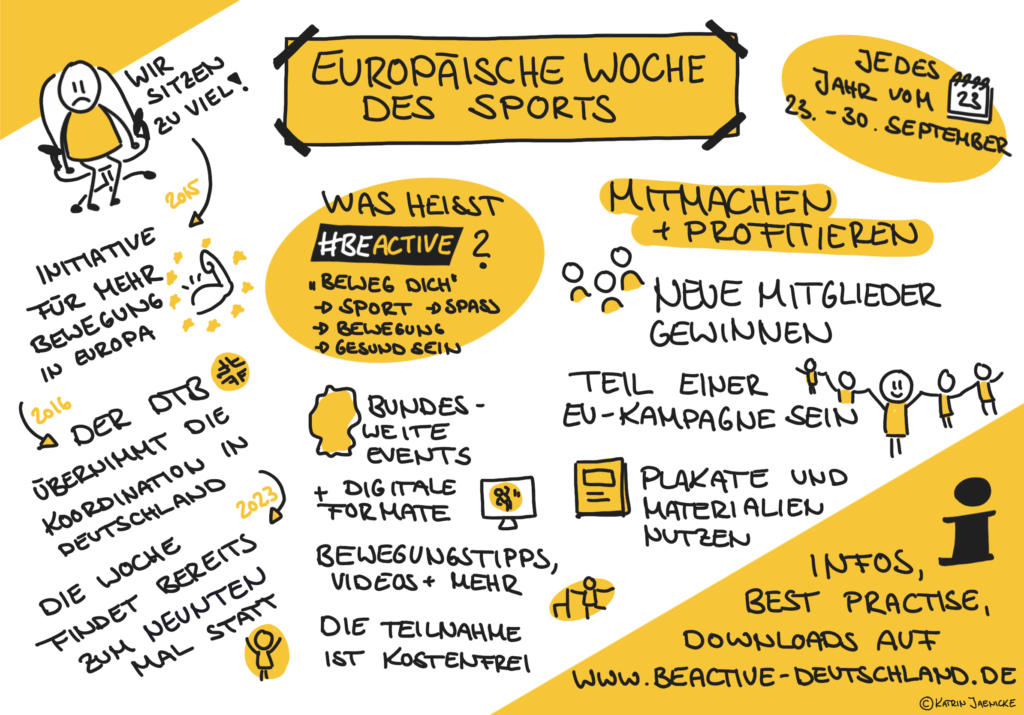 EUROPÄISCHE WOCHE
DES SPORTS
JEDES
JAHR VOM
23
23. - 30. SEPTEMBER
WIR
SITZEN
ZU VIEL!
2015
INITIATIVE
FÜR MEHR
BEWEGUNG
IN EUROPA
2016
DER DTB
ÜBERNIMMT DIE
KOORDINATION IN
DEUTSCHLAND
2023
DIE WOCHE
FINDET BEREITS
ZUM NEUNTEN
MAL STATT
WAS HEISST
#BEACTIVE ?
„BEWEG DICH“
→ SPORT → SPASS
→ BEWEGUNG
→ GESUND SEIN
BUNDES-
WEITE
EVENTS
+ DIGITALE
FORMATE
BEWEGUNGSTIPPS,
VIDEOS + MEHR
DIE TEILNAHME
IST KOSTENFREI
MITMACHEN
+ PROFITIEREN
NEUE MITGLIEDER
GEWINNEN
TEIL EINER
EU-KAMPAGNE SEIN
PLAKATE UND
MATERIALIEN
NUTZEN
i
INFOS,
BEST PRACTISE,
DOWNLOADS AUF
WWW.BEACTIVE-DEUTSCHLAND.DE
© KATRIN JAENICKE